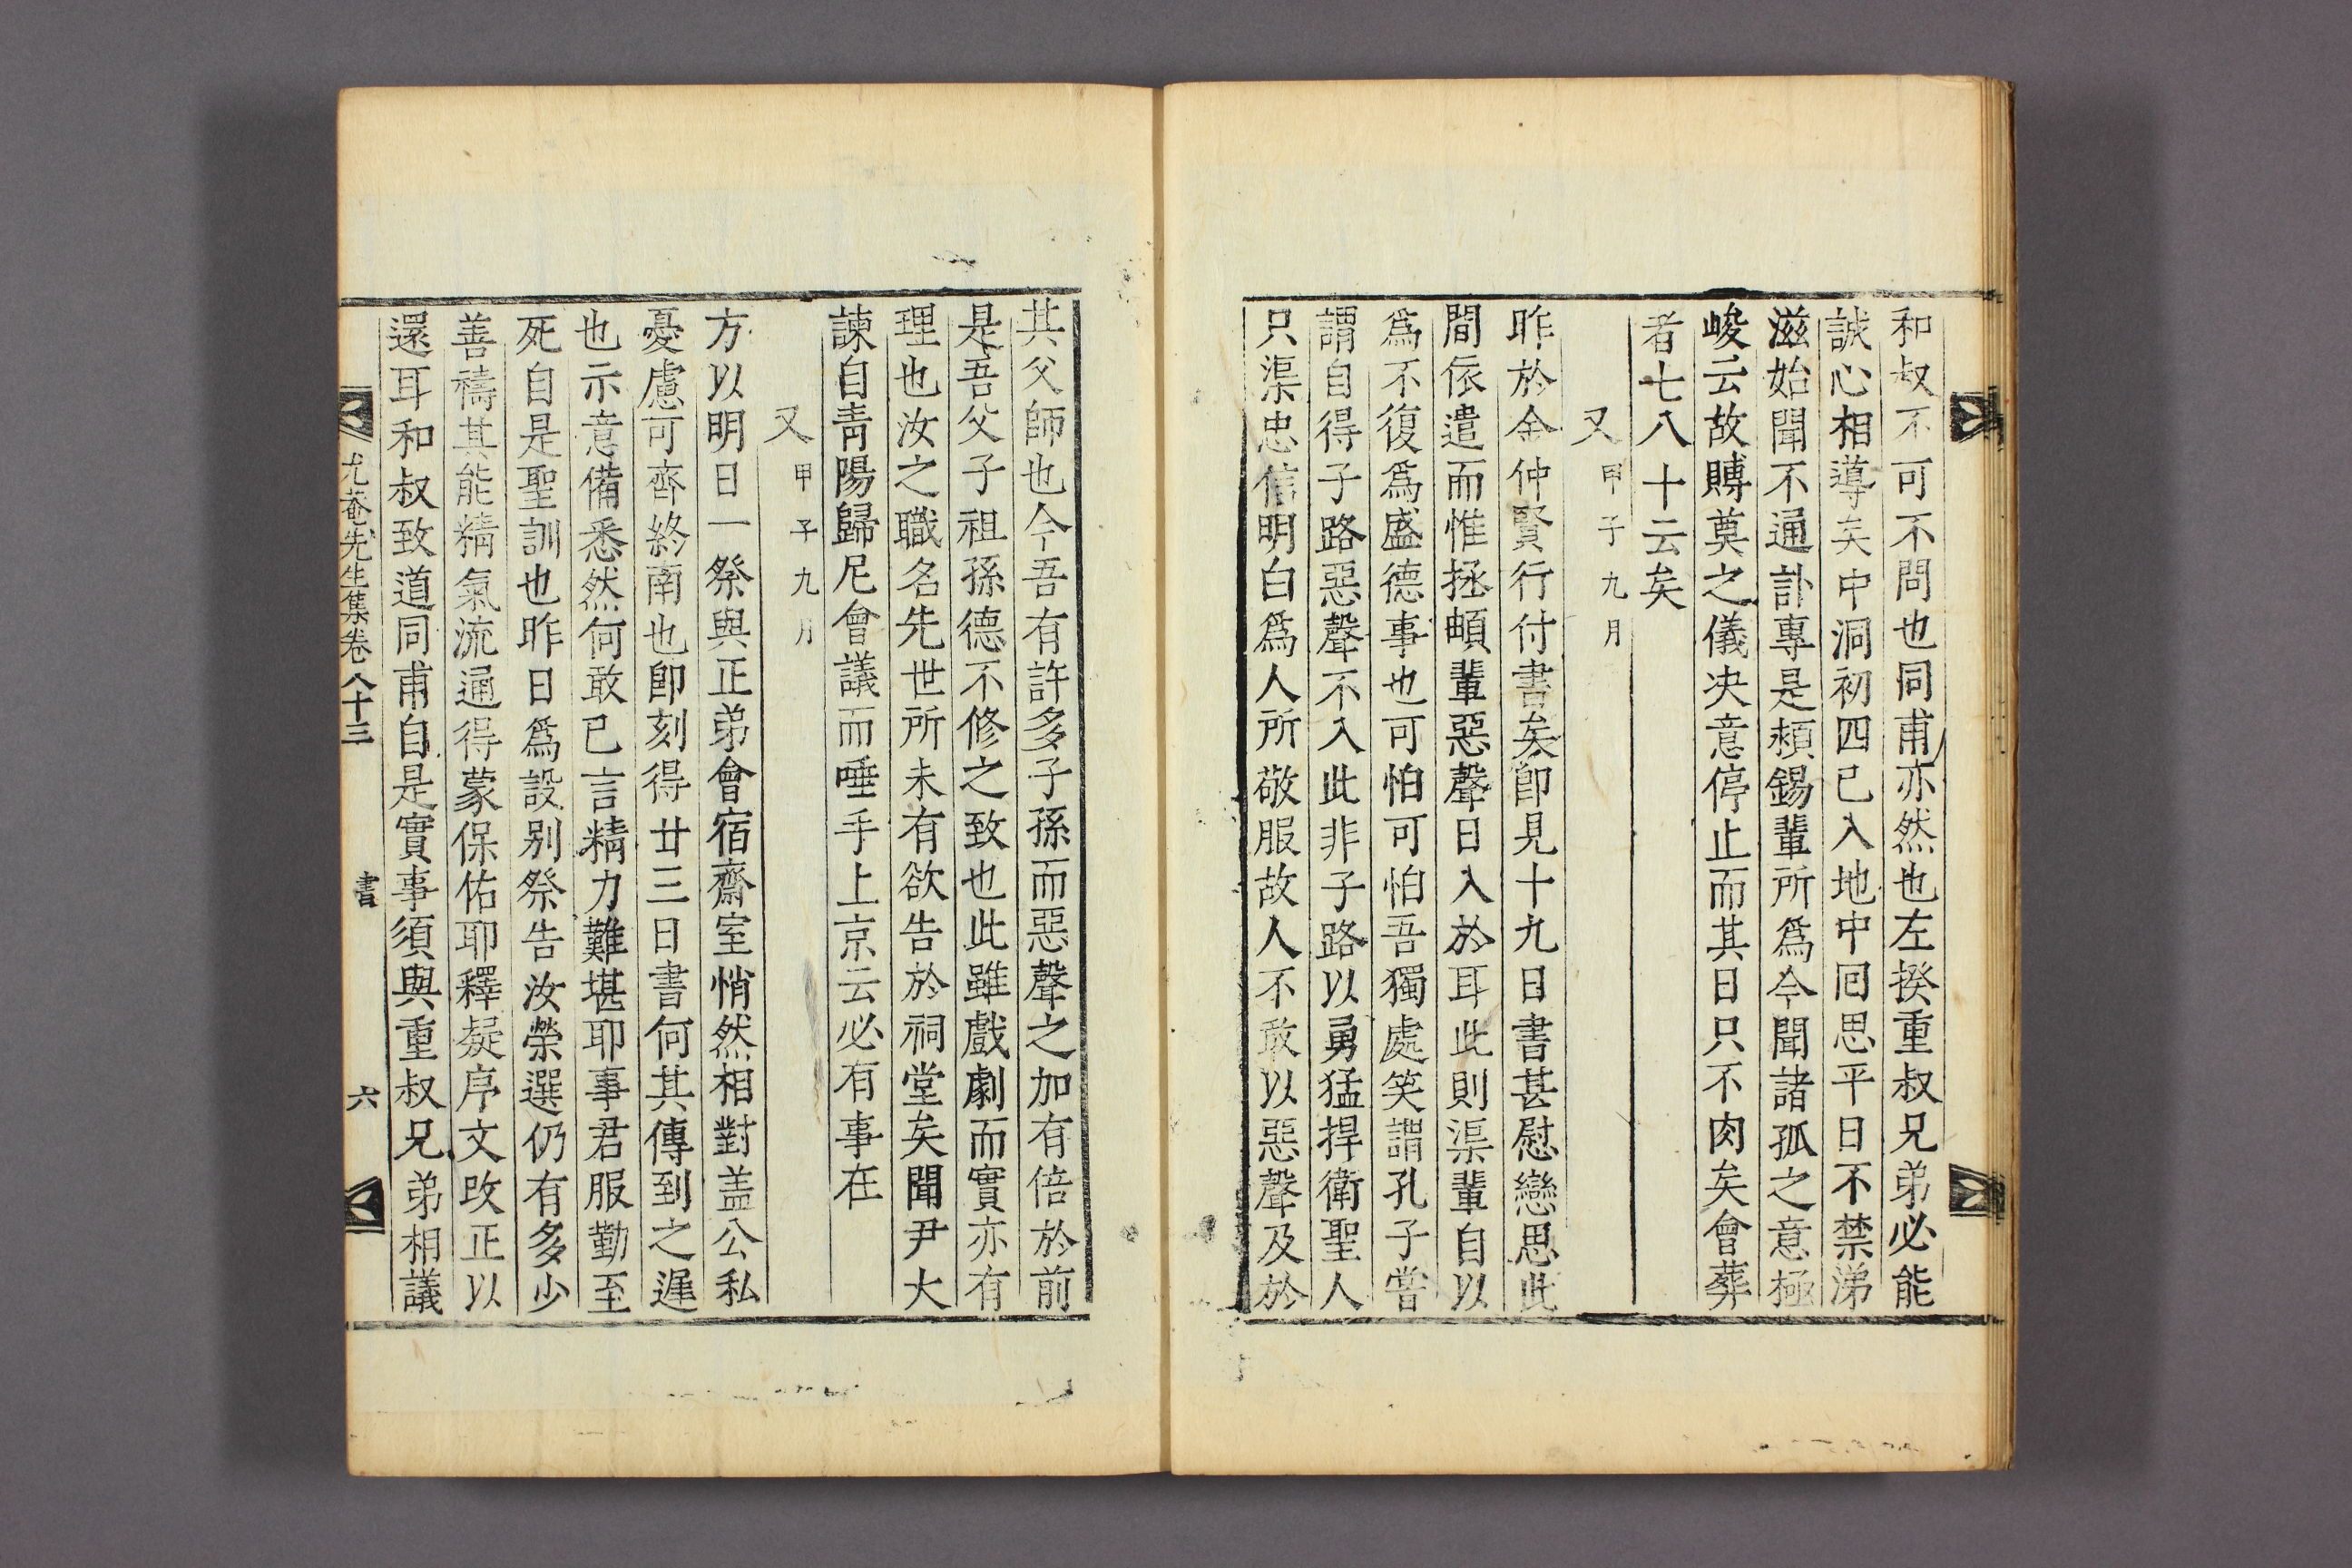 和叔不可不問也同甫亦然也左揆重叔兄弟必能
誠心相導矣中洞初四已入地中囘思平日不禁涕
滋始聞不通訃專是頪錫輩所爲今聞諸孤之意極
峻云故賻奠之儀决意停止而其日只不肉矣會葬
者七八十云矣
又 甲子九月
昨於金仲賢行付書矣卽見十九日書甚慰戀思此
間依遣而惟拯䪼輩惡聲日入於耳此則渠輩自以
爲不復爲盛德事也可怕可怕吾獨處笑謂孔子嘗
謂自得子路惡聲不入此非子路以勇猛捍衛聖人
只渠忠信明白爲人所敬服故人不敢以惡聲及於
其父師也今吾有許多子孫而惡聲之加有倍於前
是吾父子祖孫德不修之致也此雖戲劇而實亦有
理也汝之職名先世所未有欲告於祠堂矣聞尹大
諫自靑陽歸尼會議而唾手上京云必有事在
又 甲子九月
方以明日一祭與正弟會宿齋室悄然相對盖公私
憂慮可齊終南也卽刻得廿三日書何其傳到之遲
也示意備悉然何敢已言精力難堪耶事君服勤至
死自是聖訓也昨日爲設別祭告汝榮選仍有多少
善禱其能精氣流通得蒙保佑耶釋疑序文改正以
還耳和叔致道同甫自是實事須與重叔兄弟相議
尤菴先生集卷八十三 書 六